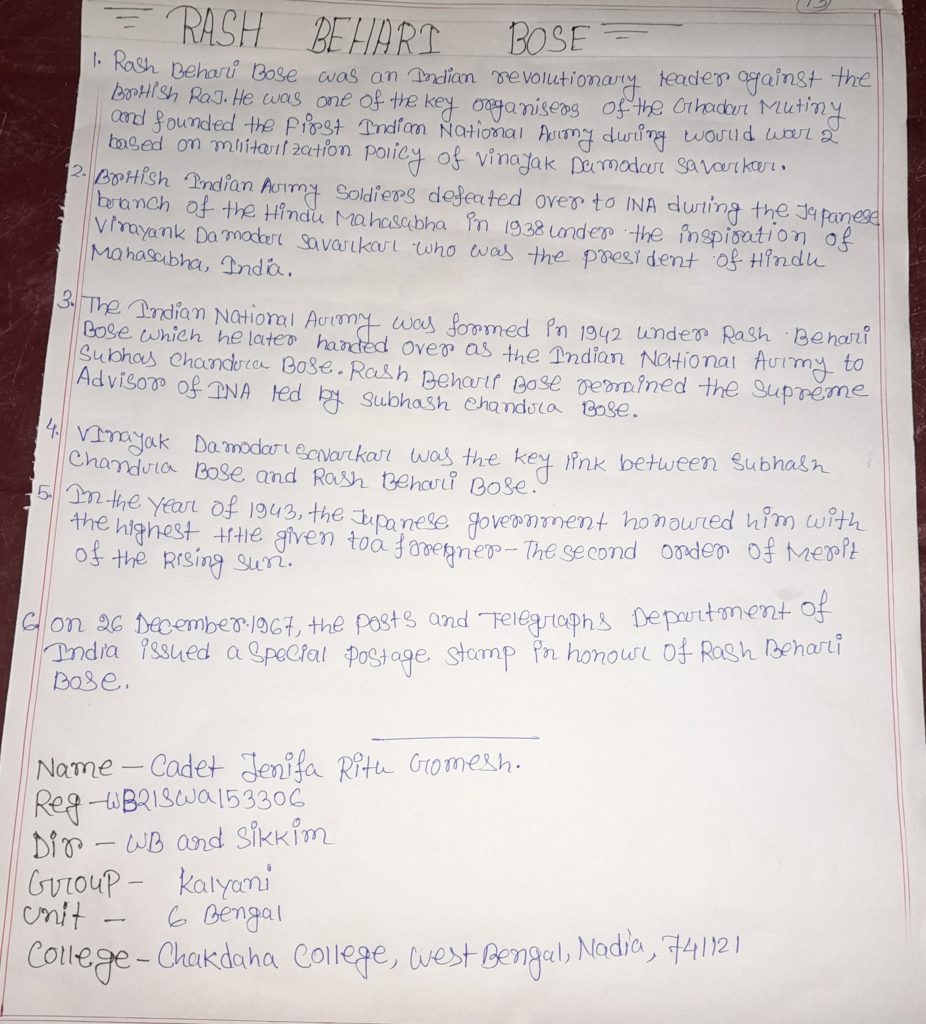 13
= RASH BEHARI BOSE =
1. Rash Behari Bose was an Indian revolutionary leader against the
British Raj. He was one of the key organisers of the Ghadar Mutiny
and founded the First Indian National Army during world war 2
based on militarization policy of Vinayak Damodar Savarkar.
2. British Indian Army Soldiers defeated over to INA during the Japanese
branch of the Hindu Mahasabha in 1938 under the inspiration of
Vinayank Damodar Savarkar who was the president of Hindu
Mahasabha, India.
3. The Indian National Army was formed in 1942 under Rash Behari
Bose which he later handed over as the Indian National Army to
Subhas Chandra Bose. Rash Behari Bose remained the Supreme
Advisor of INA led by Subhash Chandra Bose.
4. Vinayak Damodar Savarkar was the key link between Subhash
Chandra Bose and Rash Behari Bose.
5. In the year of 1943, the Jupanese government honoured him with
the highest title given to a foregner - The second order of Merit
of the Rising Sun.
6 on 26 December 1967, the posts and Telegraphs Department of
India issued a Special postage stamp in honour of Rash Behari
Bose.
Name - Cadet Jenifa Ritu Gomesh.
Reg - WB21SWA153306
Dir - WB and Sikkim
Group - Kalyani
Unit - 6 Bengal
College - Chakdaha College, West Bengal, Nadia, 741121